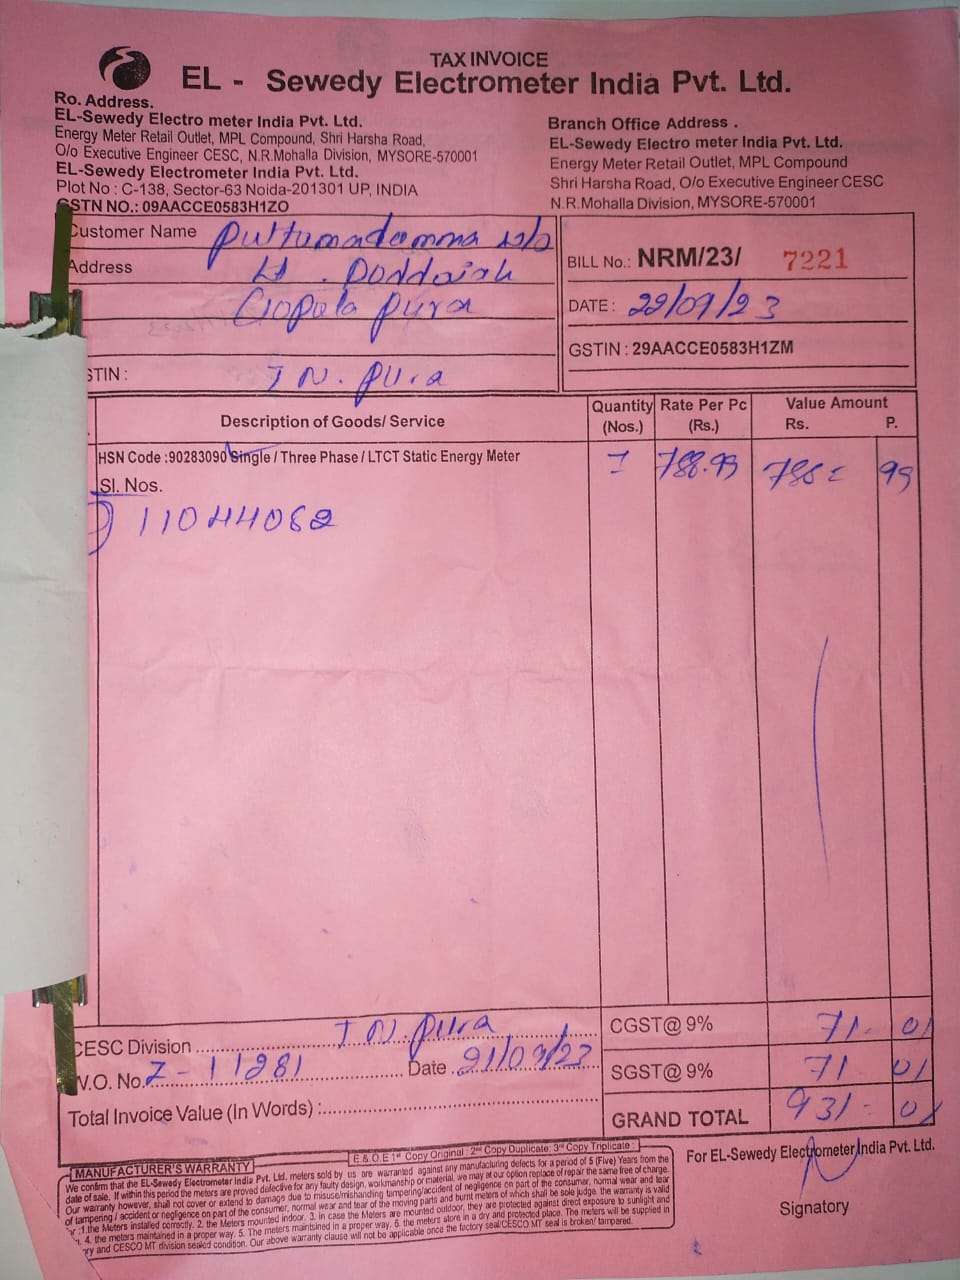 TAX INVOICE
EL - Sewedy Electrometer India Pvt. Ltd.
Ro. Address.
EL-Sewedy Electro meter India Pvt. Ltd.
Energy Meter Retail Outlet, MPL Compound, Shri Harsha Road,
O/o Executive Engineer CESC, N.R.Mohalla Division, MYSORE-570001
EL-Sewedy Electrometer India Pvt. Ltd.
Plot No : C-138, Sector-63 Noida-201301 UP, INDIA
GSTN NO.: 09AACCE0583H1ZO
Branch Office Address .
EL-Sewedy Electro meter India Pvt. Ltd.
Energy Meter Retail Outlet, MPL Compound
Shri Harsha Road, O/o Executive Engineer CESC
N.R.Mohalla Division, MYSORE-570001
Customer Name Puttamadamma w/o
Address Lt. Doddaiah
Gopala pura
STIN : T N. pura
BILL No.: NRM/23/ 7221
DATE : 22/09/23
GSTIN : 29AACCE0583H1ZM
Description of Goods/ Service Quantity (Nos.) Rate Per Pc (Rs.) Value Amount Rs. P.
HSN Code :90283090 Single / Three Phase / LTCT Static Energy Meter 1 788.99 788= 99
Sl. Nos.
1) 11044062
CESC Division T N. pura
W.O. No. Z - 11281 Date 21/09/23
Total Invoice Value (In Words) :
CGST@ 9% 71- 01
SGST@ 9% 71 01
GRAND TOTAL 931- 01
E & O.E 1st Copy Original 2nd Copy Duplicate 3rd Copy Triplicate :
For EL-Sewedy Electrometer India Pvt. Ltd.
Signatory
MANUFACTURER'S WARRANTY
We confirm that the EL-Sewedy Electrometer India Pvt. Ltd. meters sold by us are warranted against any manufacturing defects for a period of 5 (Five) Years from the
date of sale. If within this period the meters are proved defective for any faulty design, workmanship or material, we may at our option replace of repair the same free of charge.
Our warranty however, shall not cover or extend to damage due to misuse/mishanding tampering/accident of negligence on part of the consumer, normal wear and tear
of tampering / accident or negligence on part of the consumer, normal wear and tear of the moving parts and burnt meters of which shall be sole judge. the warranty is valid
for :1.the Meters installed correctly. 2. the Meters mounted indoor. 3. in case the Meters are mounted outdoor, they are protected against direct exposure to sunlight and
4. the meters maintained in a proper way. 5. The meters maintsined in a proper way. 6. the meters store in a dry and protected place. The meters will be supplied in
ry and CESCO MT division sealed condition. Our above warranty clause will not be applicable once the factory seal/CESCO MT seal is broken/ tampered.